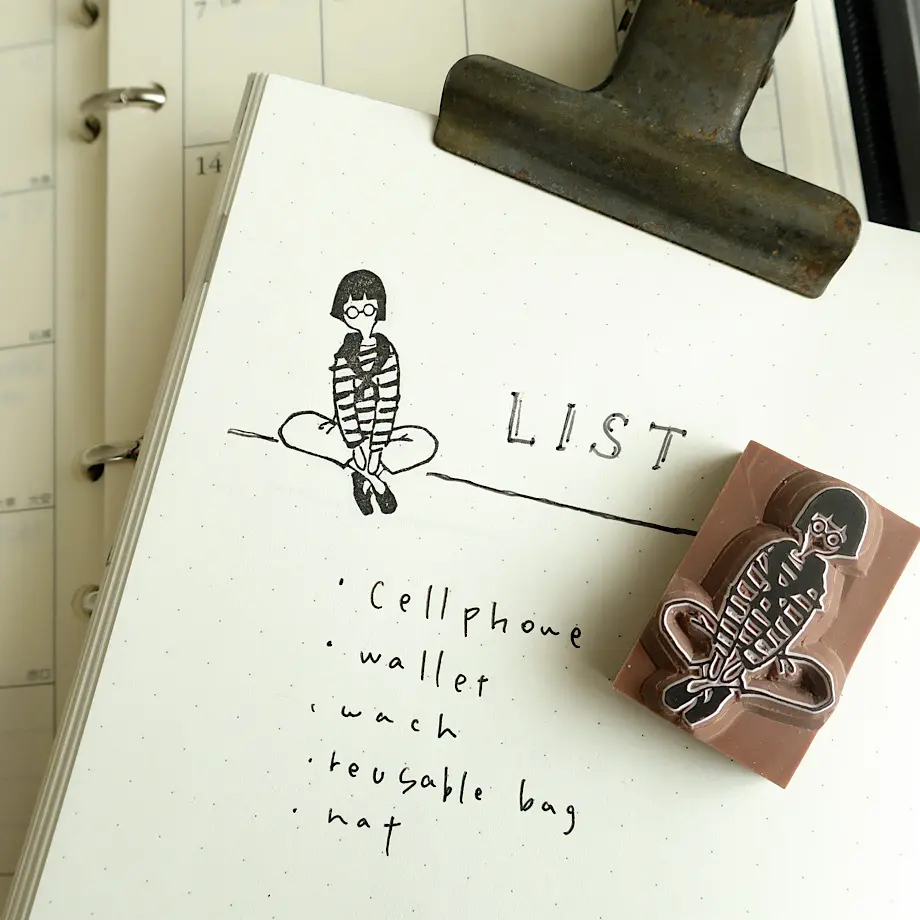 7
14
LIST
· Cellphone
· wallet
· wach
· reusable bag
· hat